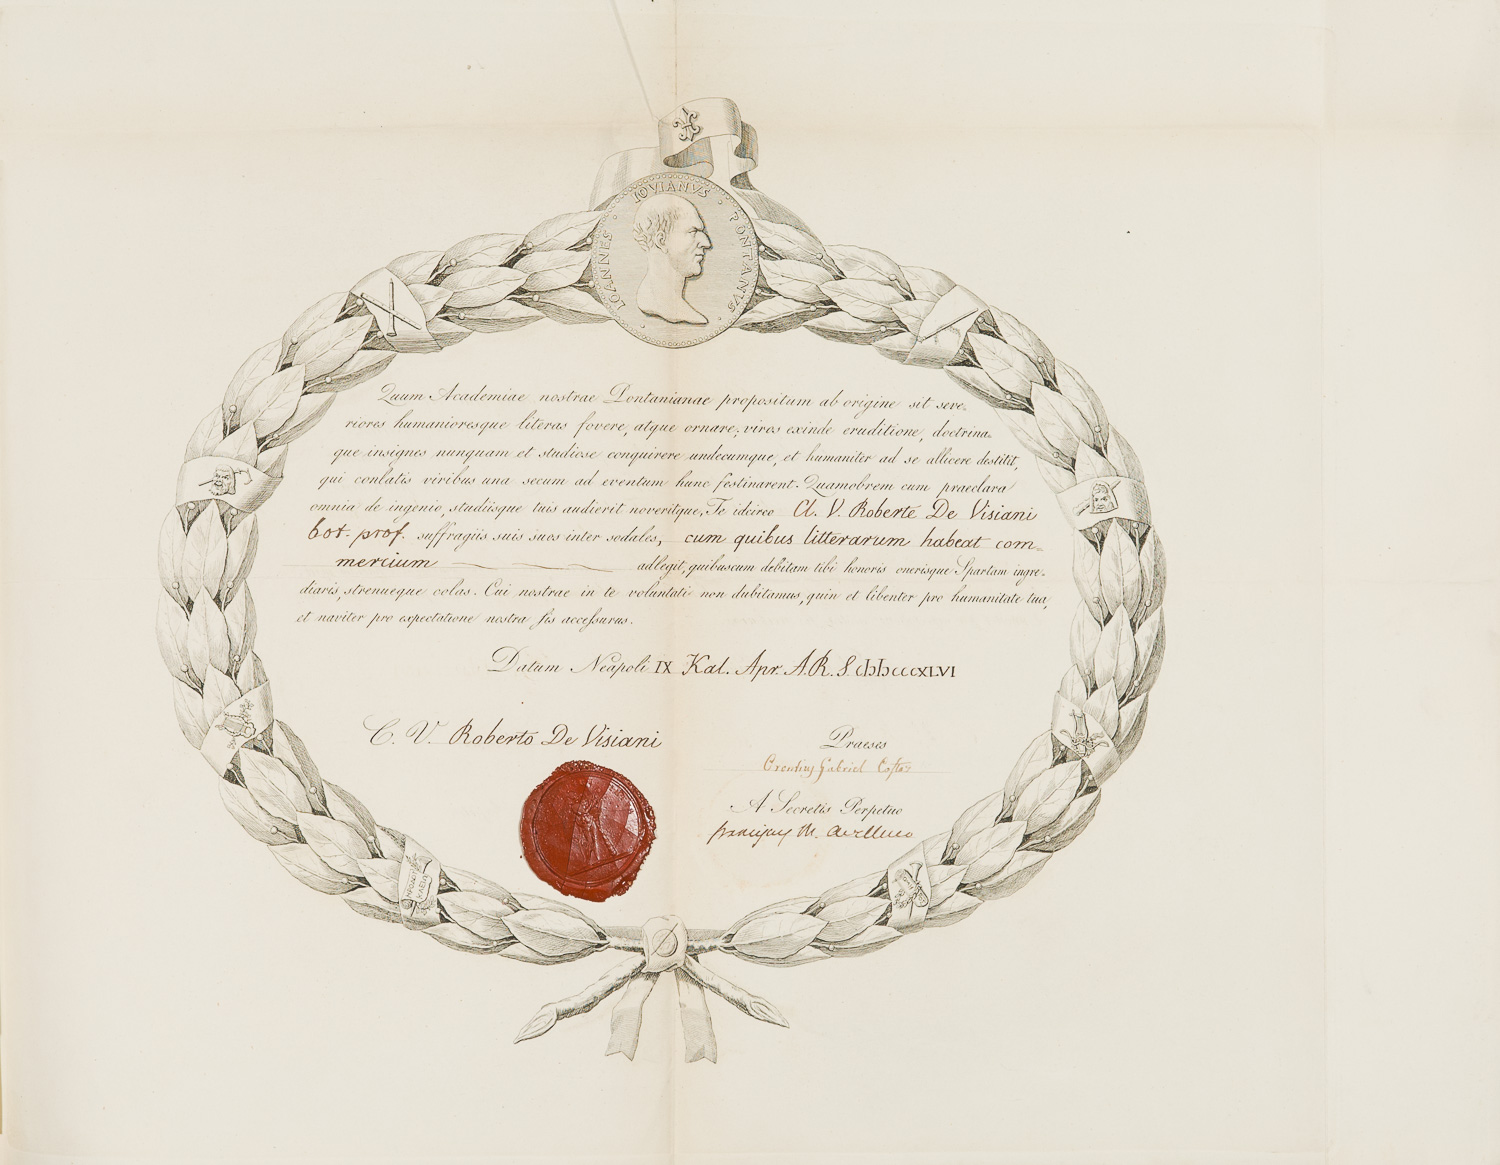 IOANNES · IOVIANVS · PONTANVS ·
Quum Academiae nostrae Pontanianae propositum ab origine sit seve-
riores humanioresque literas fovere, atque ornare; viros exinde eruditione, doctrina-
que insignes nunquam et studiose conquirere undecumque, et humaniter ad se allicere destitit,
qui conlatis viribus una secum ad eventum hunc festinarent. Quamobrem cum praeclara
omnia de ingenio, studiisque tuis audierit noveritque, Te idcirco Cl. V. Roberte De Visiani
bot. prof. suffragiis suis suos inter sodales, cum quibus litterarum habeat com-
mercium adlegit, quibuscum debitam tibi honoris onerisque Spartam ingre-
diaris, strenueque colas. Cui nostrae in te voluntati non dubitamus, quin et libenter pro humanitate tua,
et naviter pro expectatione nostra sis accessurus.
Datum Neapoli IX Kal. Apr. A. R. S. cIɔIɔcccXLVI
C. V. Roberto De Visiani
Praeses
Gabriel Costa
A Secretis Perpetuo
M. Avellino